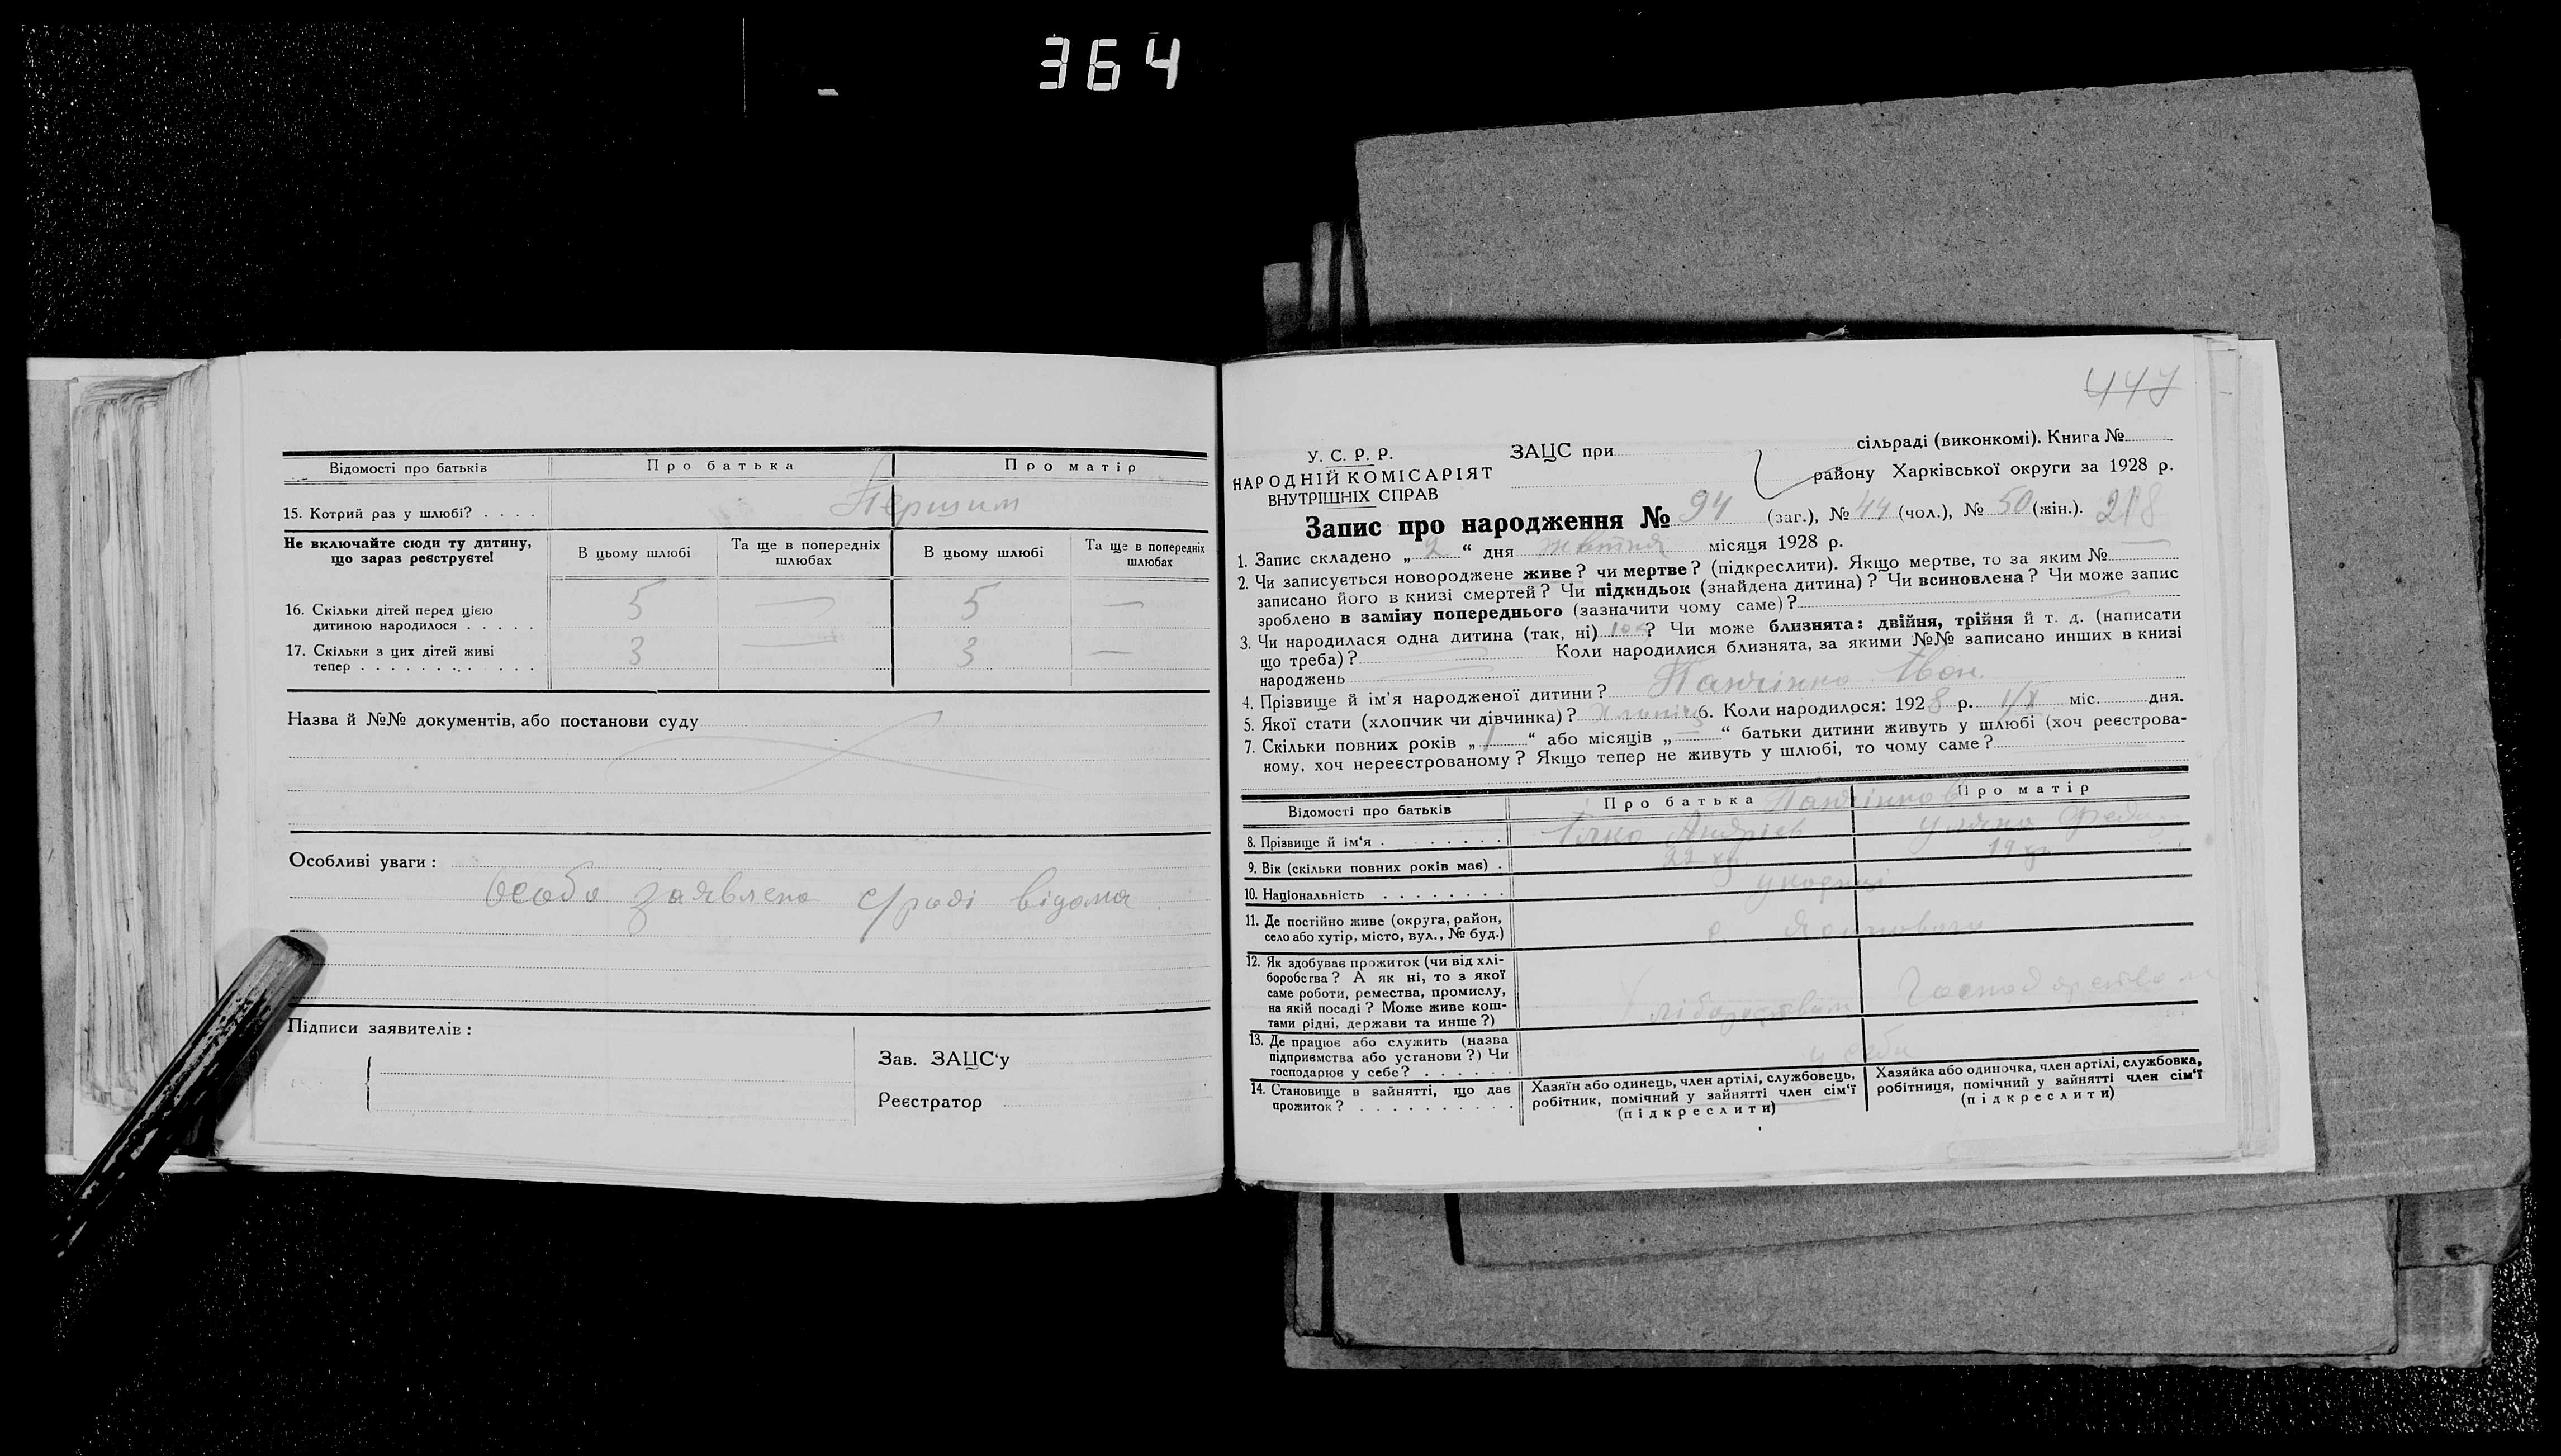 364
Відомості про батьків Про батька Про матір
15. Котрий раз у шлюбі? . . . . Першим
Не включайте сюди ту дитину, що зараз реєструєте! В цьому шлюбі Та ще в попередніх шлюбах В цьому шлюбі Та ще в попередніх шлюбах
16. Скільки дітей перед цією
дитиною народилося . . . . . 5 — 5 —
17. Скільки з цих дітей живі
тепер . . . . . . . . . . . . 3 — 3 —
Назва й №№ документів, або постанови суду
Особливі уваги :
Особа заявлено с/раді відома
Підписи заявителів :
Зав. ЗАЦС‘у
Реєстратор
447
У. С. Р. Р.
НАРОДНІЙ КОМІСАРІЯТ
ВНУТРІШНІХ СПРАВ
ЗАЦС при сільраді (виконкомі). Книга №
району Харківської округи за 1928 р.
Запис про народження № 94 (заг.), № 44 (чол.), № 50 (жін.). 218
1. Запис складено „ 2 “ дня жовтня місяця 1928 р.
2. Чи записується новороджене живе? чи мертве? (підкреслити). Якщо мертве, то за яким №
записано його в книзі смертей? Чи підкидьок (знайдена дитина)? Чи всиновлена? Чи може запис
зроблено в заміну попереднього (зазначити чому саме)?
3. Чи народилася одна дитина (так, ні) ? Чи може близнята: двійня, трійня й т. д. (написати
що треба)? Коли народилися близнята, за якими №№ записано инших в книзі
народжень
4. Прізвище й ім’я народженої дитини? Іван
5. Якої стати (хлопчик чи дівчинка)? 6. Коли народилося: 1928 р. міс. дня.
7. Скільки повних років „ 1 “ або місяців „ — “ батьки дитини живуть у шлюбі (хоч реєстрова-
ному, хоч нереєстрованому? Якщо тепер не живуть у шлюбі, то чому саме?
Відомості про батьків Про батька Про матір
8. Прізвище й ім‘я . . . . . . . . Андрієв Уляна
9. Вік (скільки повних років має) . 22 19
10. Національність . . . . . . .
11. Де постійно живе (округа, район,
село або хутір, місто, вул., № буд.) с.
12. Як здобуває прожиток (чи від хлі-
боробства? А як ні, то з якої
саме роботи, ремества, промислу,
на якій посаді? Може живе кош-
тами рідні, держави та инше?)
13. Де працює або служить (назва
підприємства або установи?) Чи
господарює у себе? . . . . . .
14. Становище в зайнятті, що дає
прожиток? . . . . . . . . . .
Хазяїн або одинець, член артілі, службовець,
робітник, помічний у зайнятті член сім‘ї
(підкреслити)
Хазяйка або одиночка, член артілі, службовка,
робітниця, помічний у зайнятті член сім‘ї
(підкреслити)